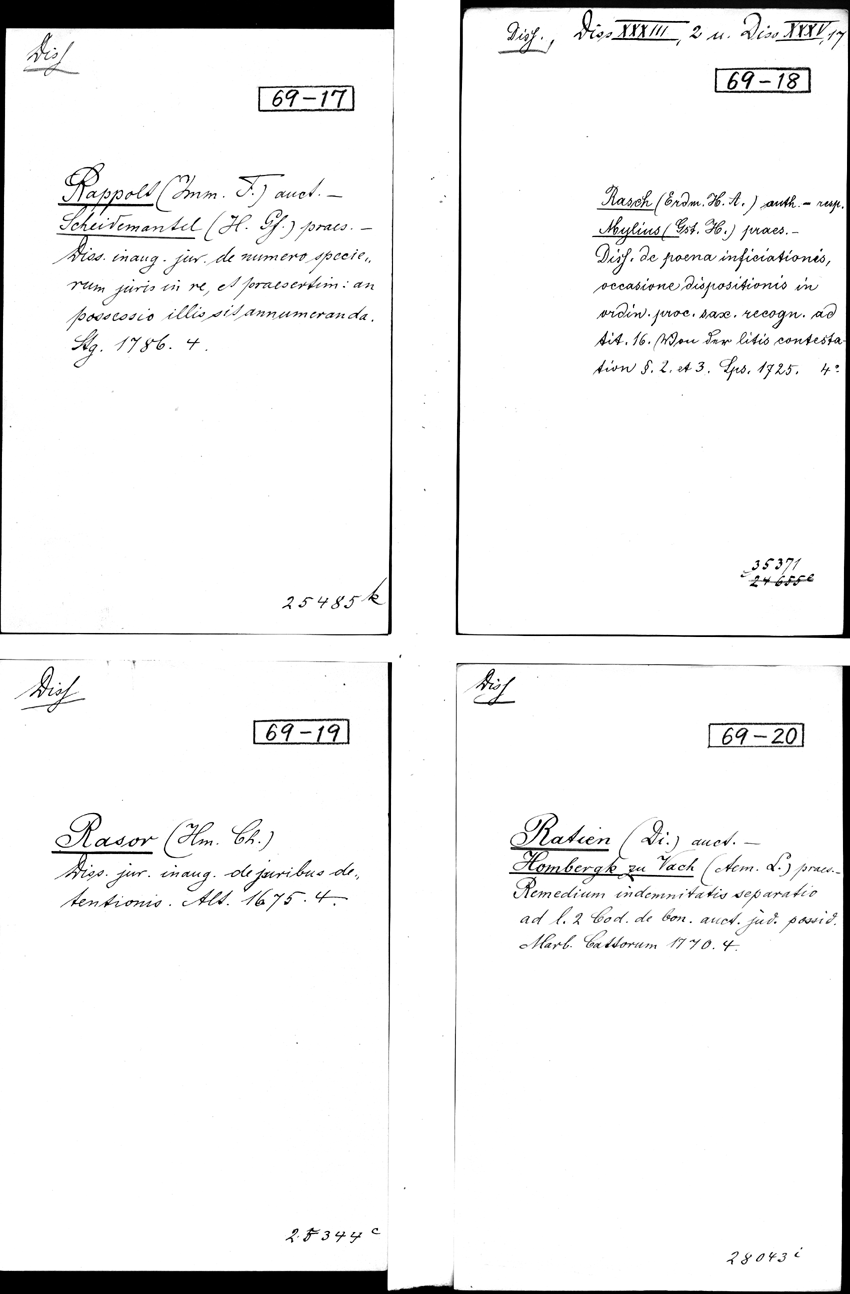 Diss
69-17
Rappolt (Imm. F.) auct. —
Scheidemantel (H. Gf.) praes. —
Diss. inaug. jur. de numero specie„
rum juris in re, et praesertim: an
possessio illis sit annumeranda.
Stg. 1786. 4.
25485 k
Diss., Diss XXXIII, 2 u. Diss XXXV, 17
69-18
Rasch (Erdm. H. A.) auth. — resp.
Mylius (Gst. H.) praes. —
Diss. de poena inficiationis,
occasione dispositionis in
ordin. proc. sax. recogn. ad
tit. 16. Von der litis contesta-
tion §. 2. et 3. Lps. 1725. 4°
35371
24655 e
Diss
69-19
Rasor (Hm. Ch.)
Diss. jur. inaug. de juribus de„
tentionis. Alt. 1675. 4.
25344 c
Diss
69-20
Ratien (Di.) auct. —
Hombergk zu Vach (Aem. L.) praes. —
Remedium indemnitatis separatio
ad l. 2 Cod. de bon. auct. jud. possid.
Marb. Cattorum 1770. 4.
28043 i